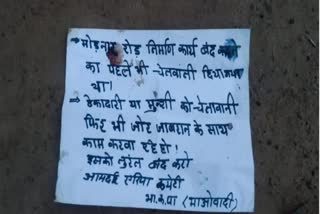 → मोड़नार रोड निर्माण कार्य बंद करने
का पहले भी चेतवानी दिया गया
था।
→ ठेकादारी या मुन्शी को चेतावानी
फिर भी जोर जाबरान के साथ
काम करवा रहे हो!
इसको तुरंत बंद करो
आमदई एरिया कमेटी
भा.क.पा (माओवादी)